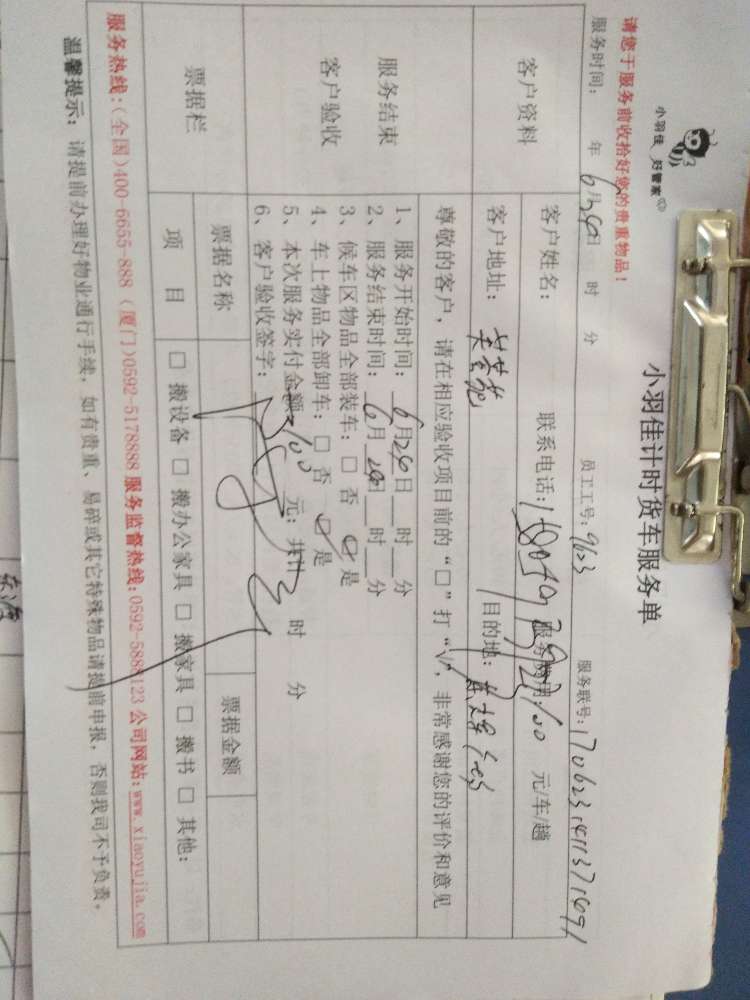 小羽佳 好管家
小羽佳计时货车服务单
请您于服务前收拾好您的贵重物品！
服务时间： 年 6月24日 时 分 员工工号：9623 服务联号：
客户资料
客户姓名： 联系电话： 服务费用：100 元/车/趟
客户地址： 目的地：
尊敬的客户，请在相应验收项目前的“□”打“√”，非常感谢您的评价和意见
服务结束
客户验收
1、服务开始时间：6月24日__时__分
2、服务结束时间：6月24日__时__分
3、候车区物品全部装车：□ 否 ☑ 是
4、车上物品全部卸车：□ 否 ☑ 是
5、本次服务实付金额 100 元；共计 时 分
6、客户验收签字：
票据栏
票据名称 票据金额
项 目 □ 搬设备 □ 搬办公家具 □ 搬家具 □ 搬书 □ 其他：
服务热线：(全国)400-6655-888 (厦门)0592-5178888 服务监督热线：0592-5888123 公司网站：www.xiaoyujia.com
温馨提示：请提前办理好物业通行手续，如有贵重、易碎或其它特殊物品请提前申报，否则我司不予负责。